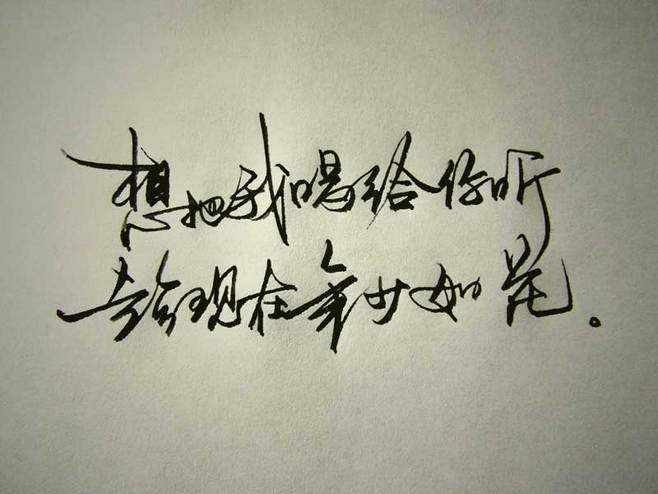 想把我唱给你听
趁现在年少如花。